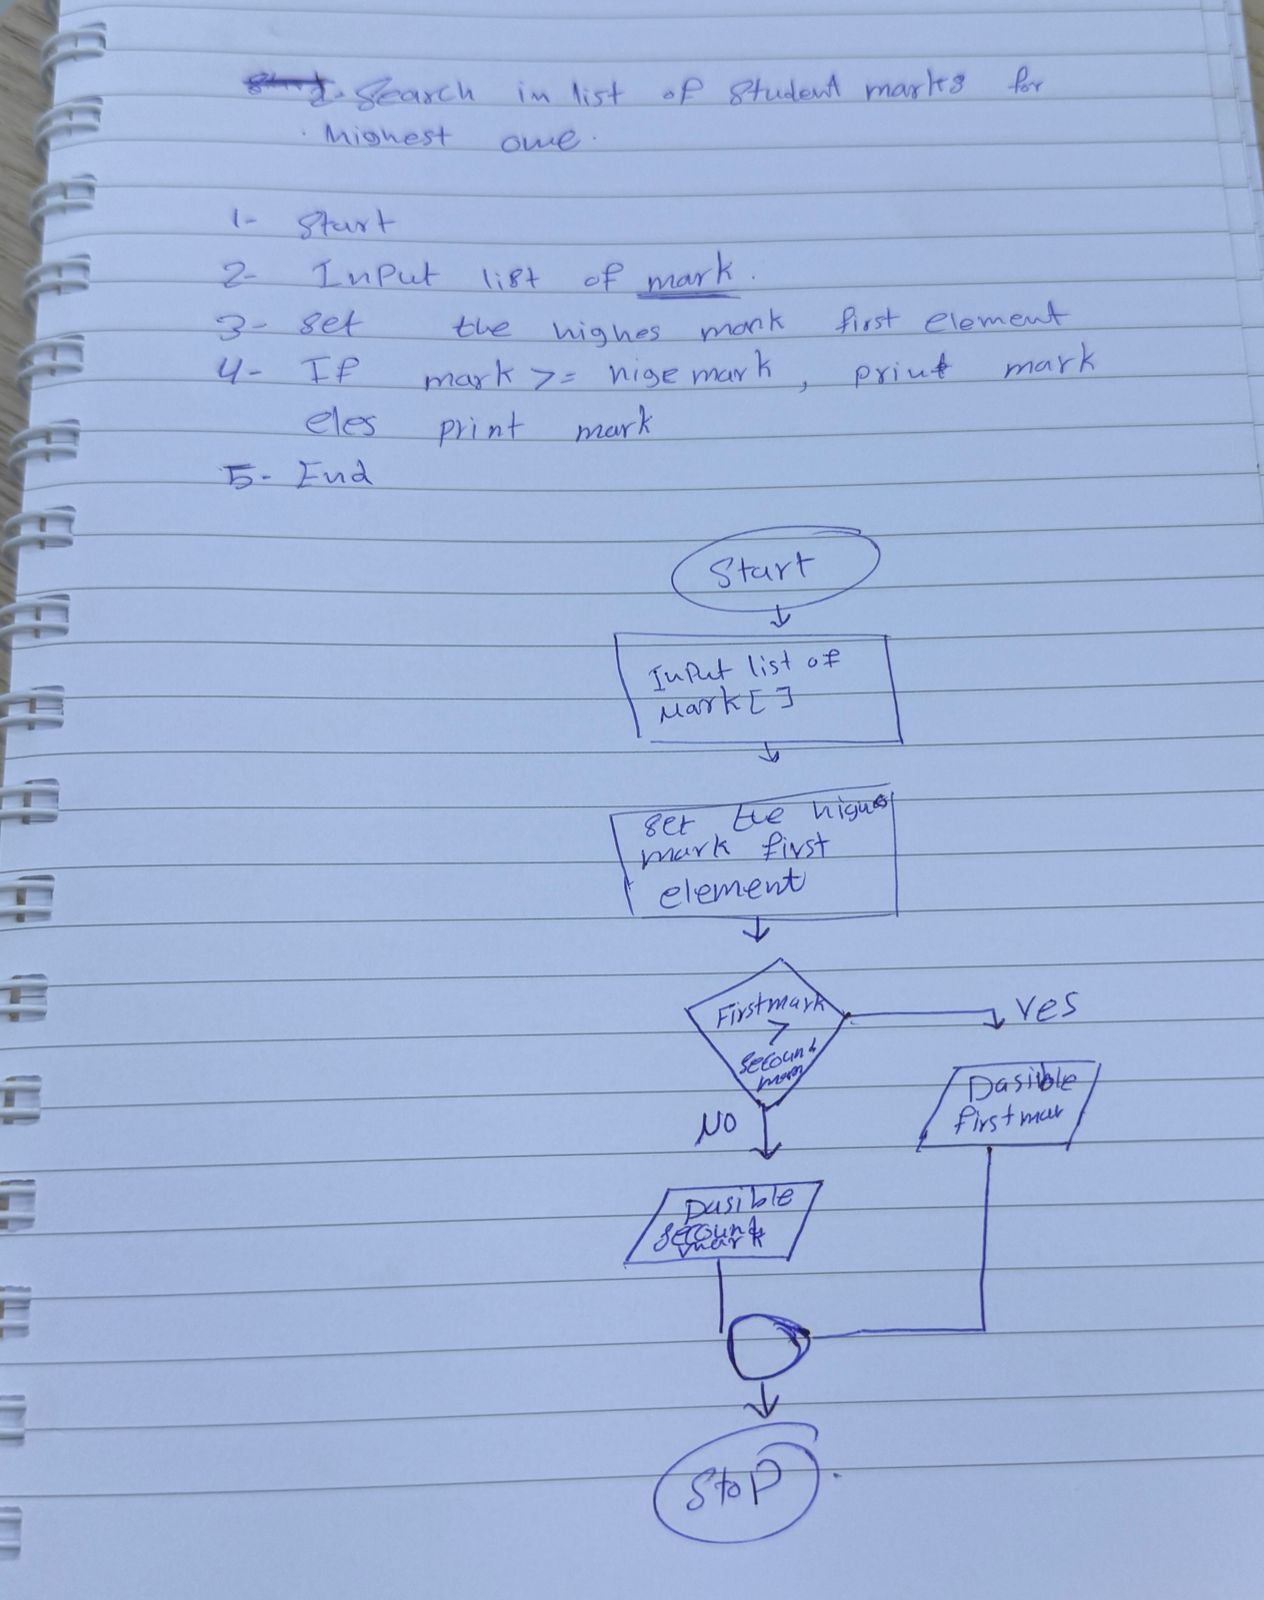 Search in list of student marks for
highest one.
1- Start
2- Input list of mark.
3- set the highes mark first element
4- If mark >= hige mark, print mark
eles print mark
5- End
Start
Input list of
Mark[]
set the highes
mark first
element
First mark
>
secound
mark
Yes
Dasible
first mar
NO
Dasible
secound
mark
Stop